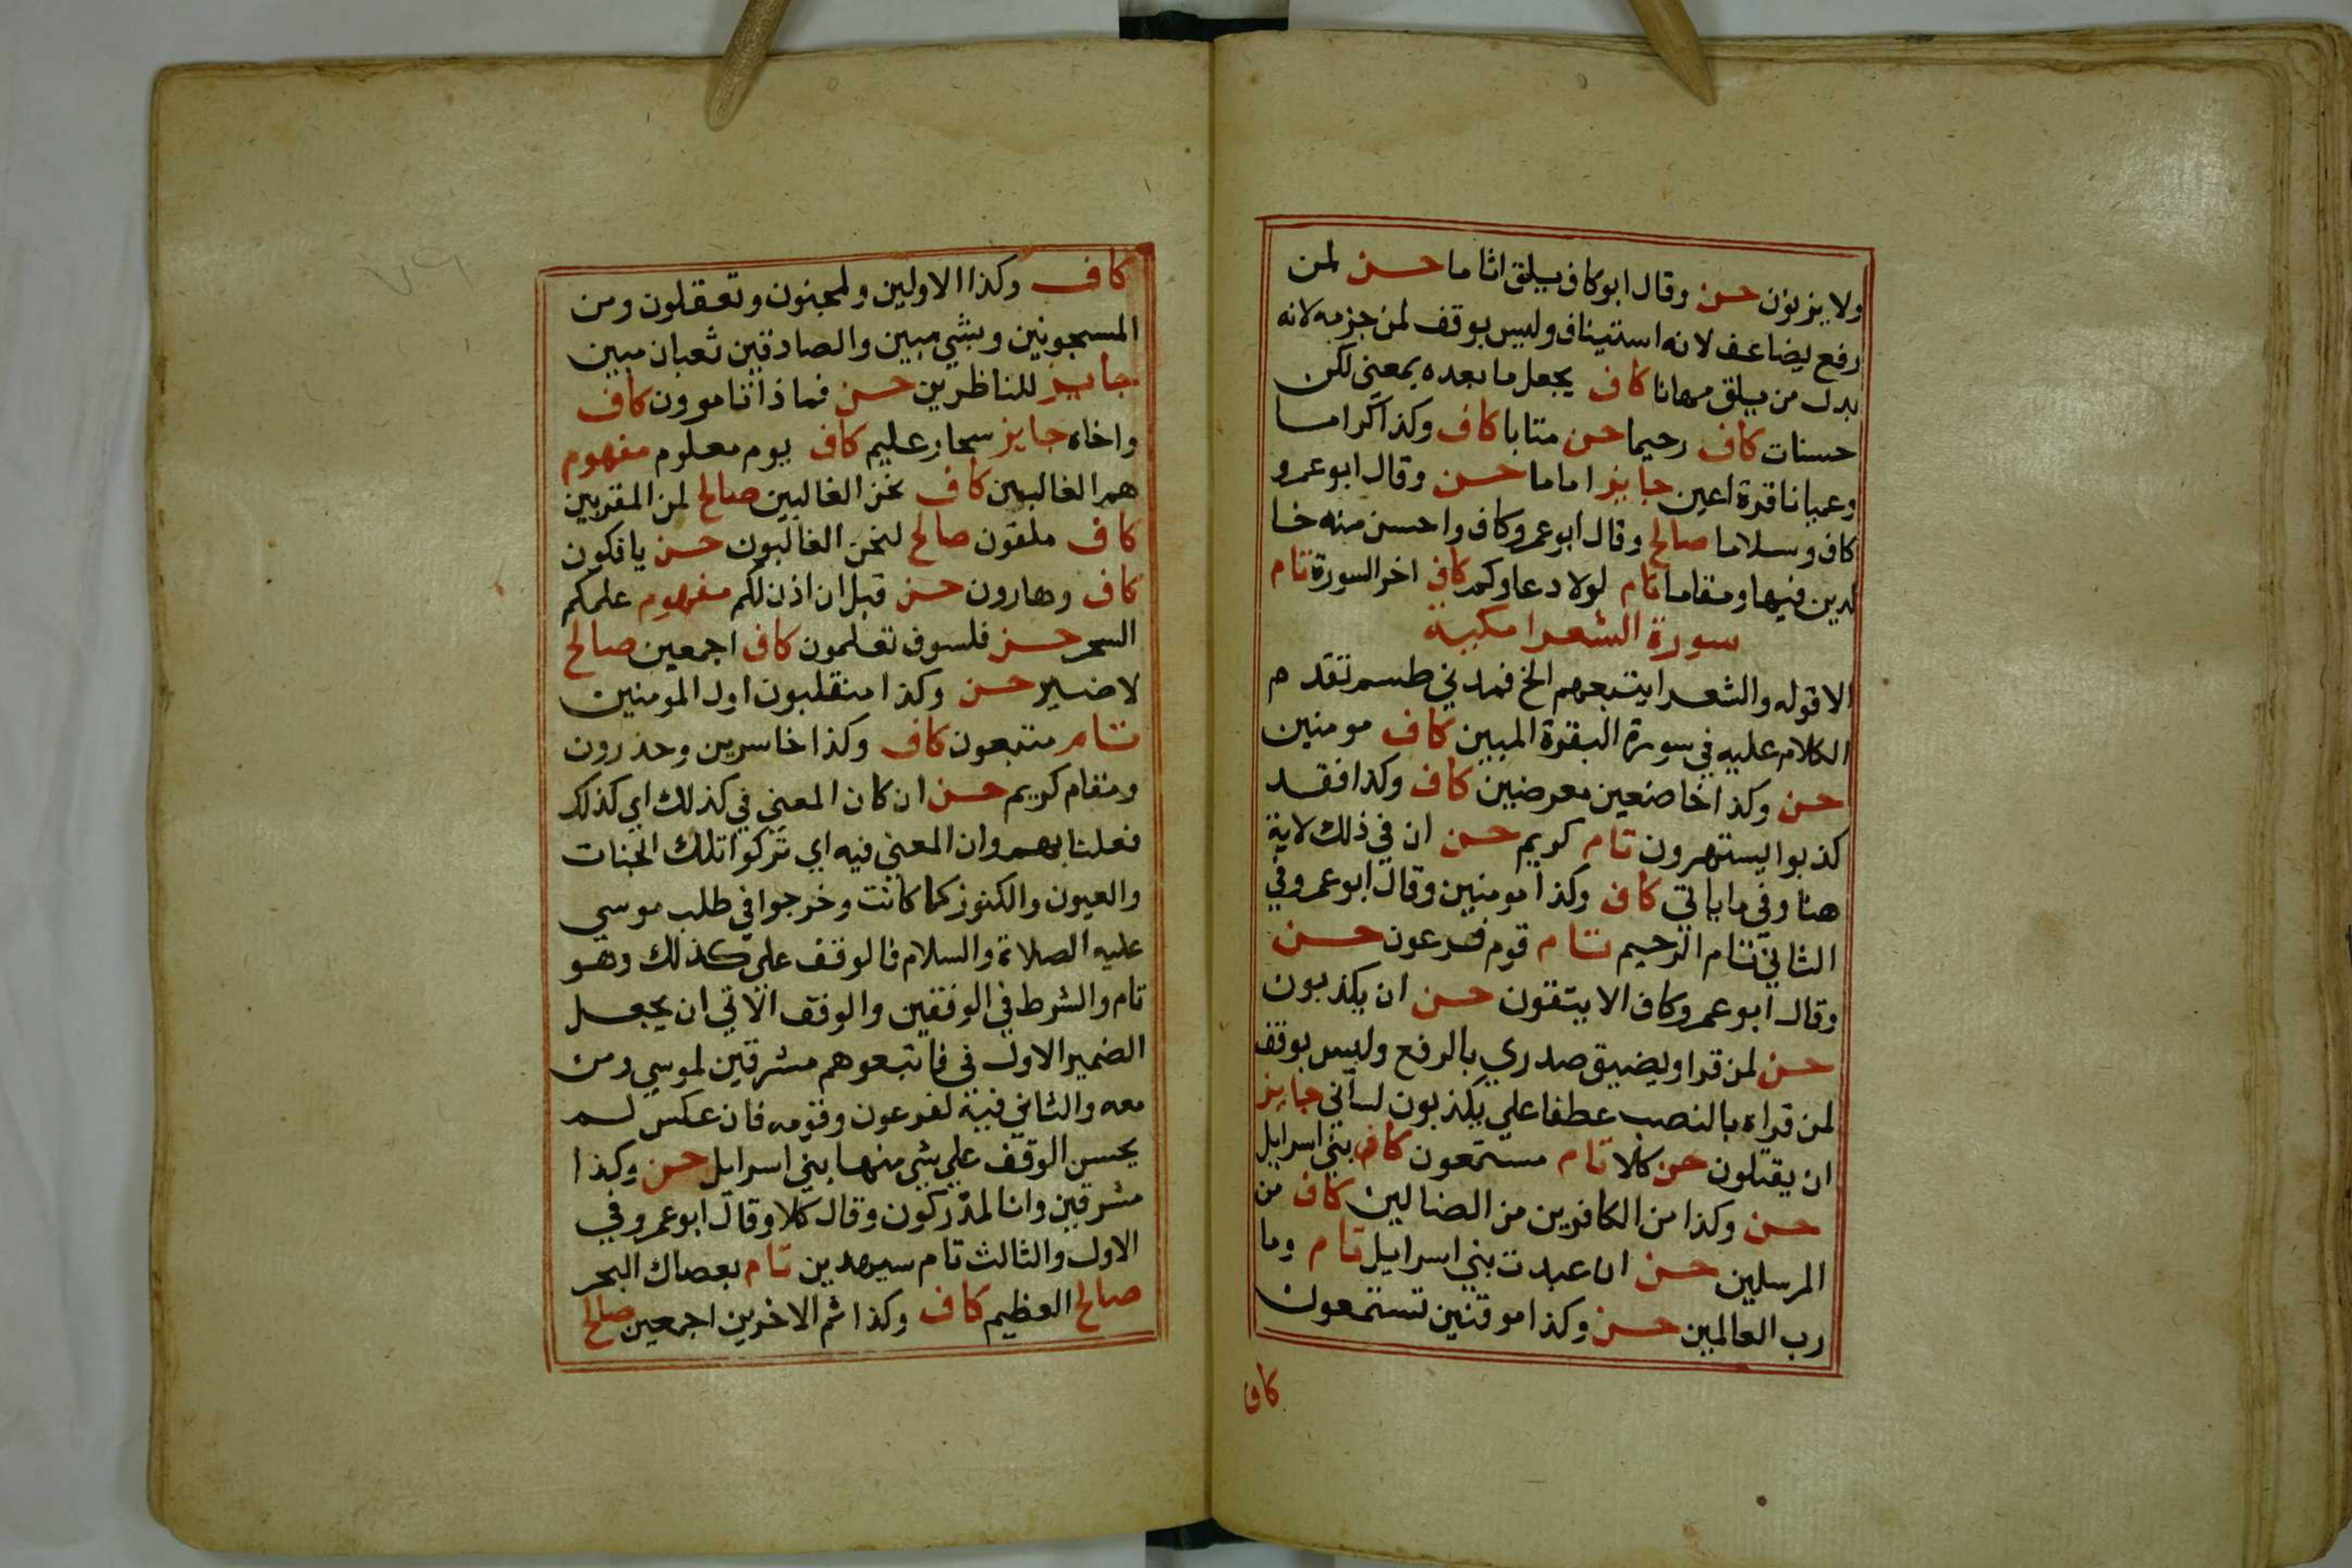 ولا يزنون حسن وقال ابو كاف يلق اثاما حسن لمن
رفع يضاعف لانه استيناف وليس بوقف لمن جزمه لانه
بدل من يلق مهانا كاف يجعل ما بعده بمعني لكن
حسنات كاف رحيما حسن متابا كاف وكذا كراما
وعميانا قرة اعين جايز اماما حسن وقال ابو عمرو
كاف وسلاما صالح وقال ابو عمرو كاف واحسن منه خا
لدين فيها ومقاما تام لولا دعاوكم كاف اخر السورة تام
سورة الشعرا مكية
الا قوله والشعرا يتبعهم الخ فمدني طسم تقدم
الكلام عليه في سورة البقرة المبين كاف مومنين
حسن وكذا خاضعين معرضين كاف وكذا فقد
كذبوا يستهزون تام كريم حسن ان في ذلك لاية
هنا وفي ما ياتي كاف وكذا مومنين وقال ابو عمرو في
الثاني تام الرحيم تام قوم فرعون حسن
وقال ابو عمرو كاف الا يتقون حسن ان يكذبون
حسن لمن قرا ويضيق صدري بالرفع وليس بوقف
لمن قراه بالنصب عطفا علي يكذبون لساني جايز
ان يقتلون حسن كلا تام مستمعون كاف بني اسرايل
حسن وكذا من الكافرين من الضالين كاف من
المرسلين حسن ان عبدت بني اسرايل تام وما
رب العالمين حسن وكذا موقنين تستمعون
كاف
كاف وكذا الاولين ولمجنون وتعقلون ومن
المسجونين وبشي مبين والصادقين ثعبان مبين
جايز للناظرين حسن فماذا تامرون كاف
واخاه جايز سحار عليم كاف يوم معلوم مفهوم
هم الغالبين كاف نحن الغالبين صالح لمن المقربين
كاف ملقون صالح لنحن الغالبون حسن يافكون
كاف وهارون حسن قبل ان اذن لكم مفهوم علمكم
السحر حسن فلسوف تعلمون كاف اجمعين صالح
لا ضير حسن وكذا منقلبون اول المومنين
تام متبعون كاف وكذا خاسرين وحذرون
ومقام كريم حسن ان كان المعني في كذلك اي كذلك
فعلنا بهم وان المعني فيه اي تركوا تلك الجنات
والعيون والكنوز كما كانت وخرجوا في طلب موسي
عليه الصلاة والسلام فالوقف علي كذلك وهو
تام والشرط في الوقفين والوقف الاتي ان يجعل
الضمير الاول في فاتبعوهم مشرقين لموسي ومن
معه والثاني فيه لفرعون وقومه فان عكس لم
يحسن الوقف علي شي منها بني اسرايل حسن وكذا
مشرقين وانا لمدركون وقال كلا وقال ابو عمرو في
الاول والثالث تام سيهدين تام بعصاك البحر
صالح العظيم كاف وكذا ثم الاخرين اجمعين صالح